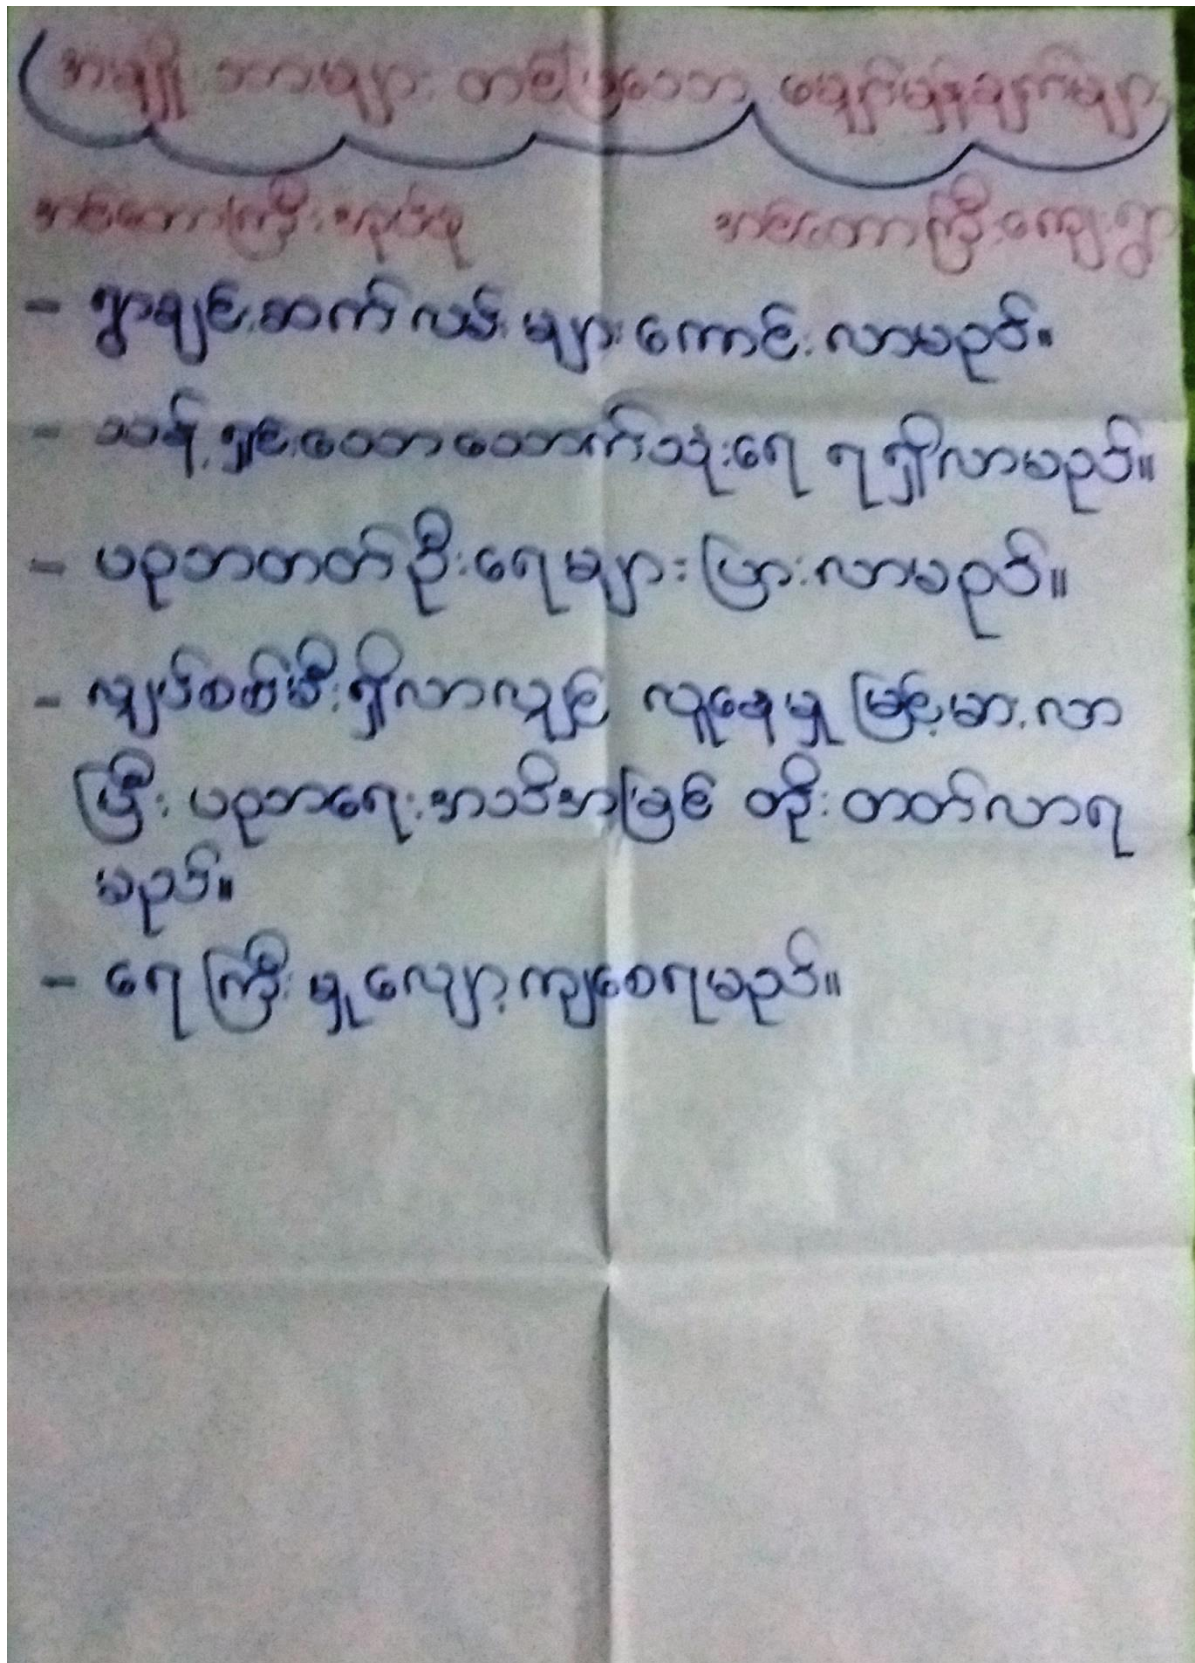 အမျိုးသားများ တင်ပြသော မျှော်မှန်းချက်များ
အင်တော်ကြီး အုပ်စု အင်တော်ကြီးကျေးရွာ
- ရွာချင်းဆက်လမ်းများကောင်းလာမည်။
- သန့်ရှင်းသောသောက်သုံးရေ ရရှိလာမည်။
- ပညာတတ်ဦးရေများပြားလာမည်။
- လျှပ်စစ်မီးရှိလာလျှင် လူနေမှုမြင့်မားလာ
ပြီး ပညာရေးအသိအမြင် တိုးတတ်လာရ
မည်။
- ရေကြီးမှုလျော့ကျစေရမည်။